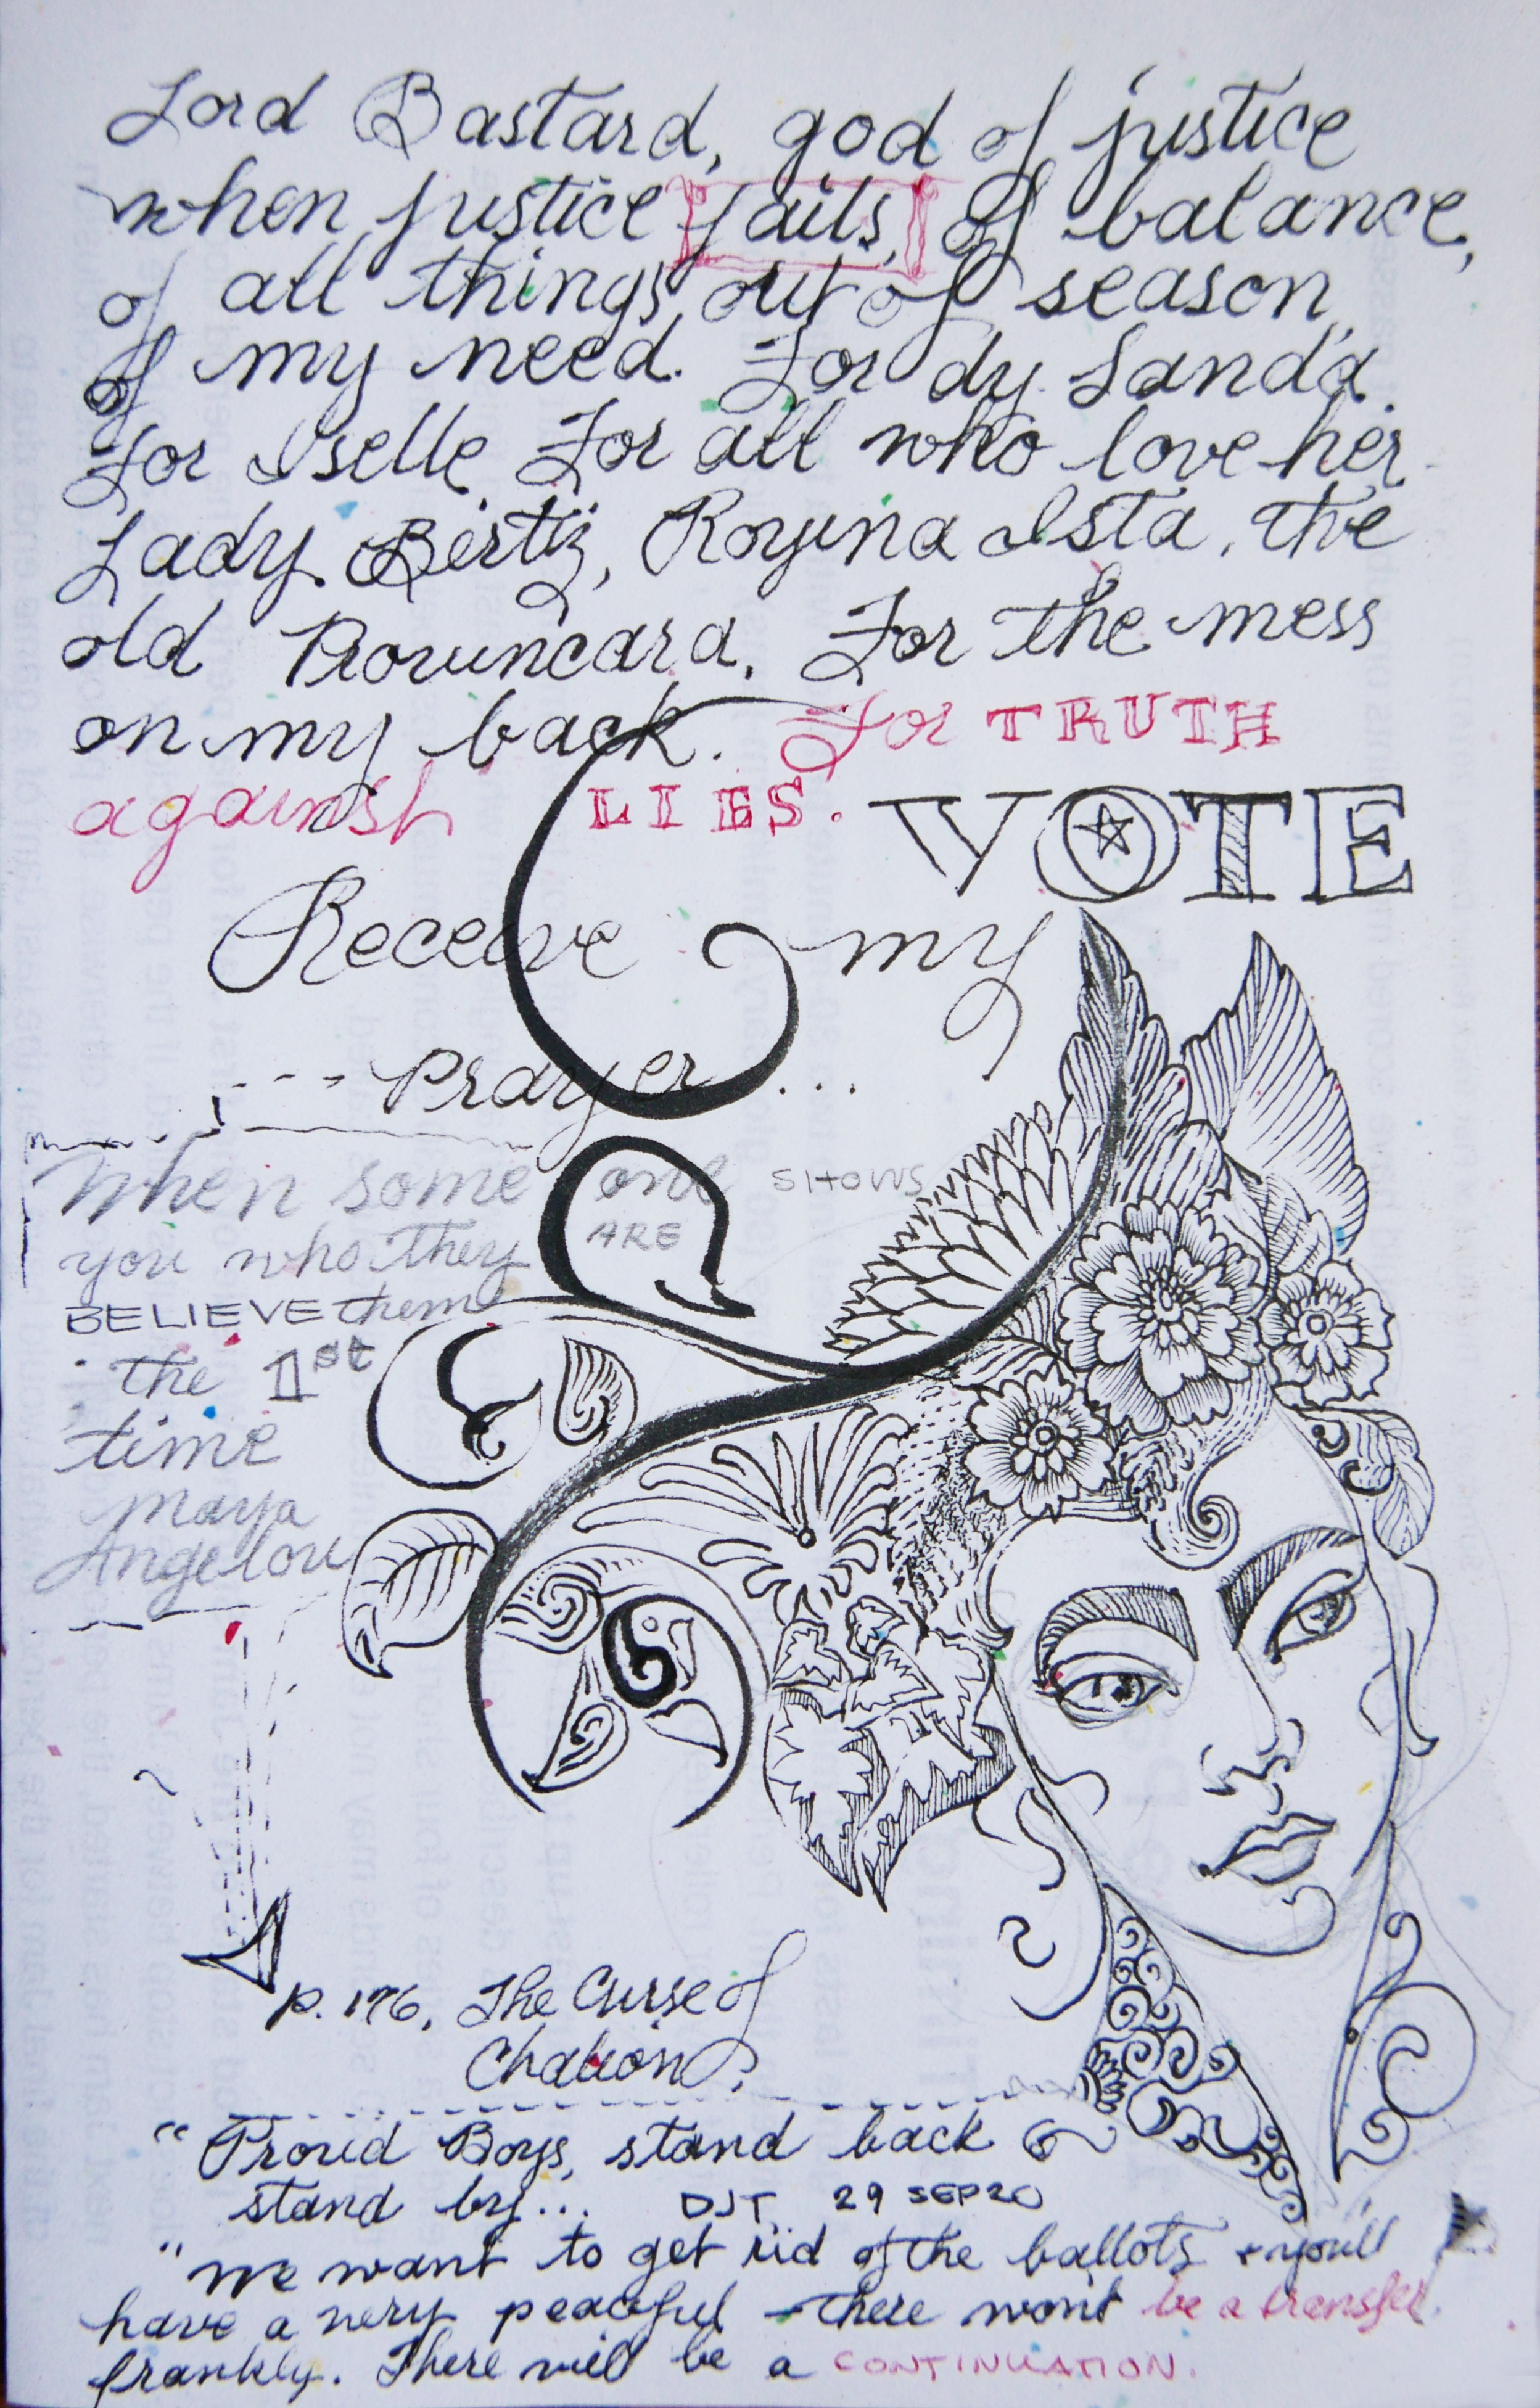 Lord Bastard, god of justice
when justice fails, of balance,
of all things out of season,
of my need. For dy Sanda.
For Iselle. For all who love her.
Lady Bertiz, Royina Ista, the
old Provincara. For the mess
on my back. For TRUTH
against LIES. VOTE
Receive my
--- Prayer ...
When some one SHOWS
you who they ARE
BELIEVE them
the 1st
time
Maya
Angelou
p. 176, The Curse of
Chalion.
"Proud Boys, stand back
stand by... DJT 29 SEP20
"We want to get rid of the ballots + you'll
have a very peaceful - there won't be a transfer
frankly. There will be a CONTINUATION.